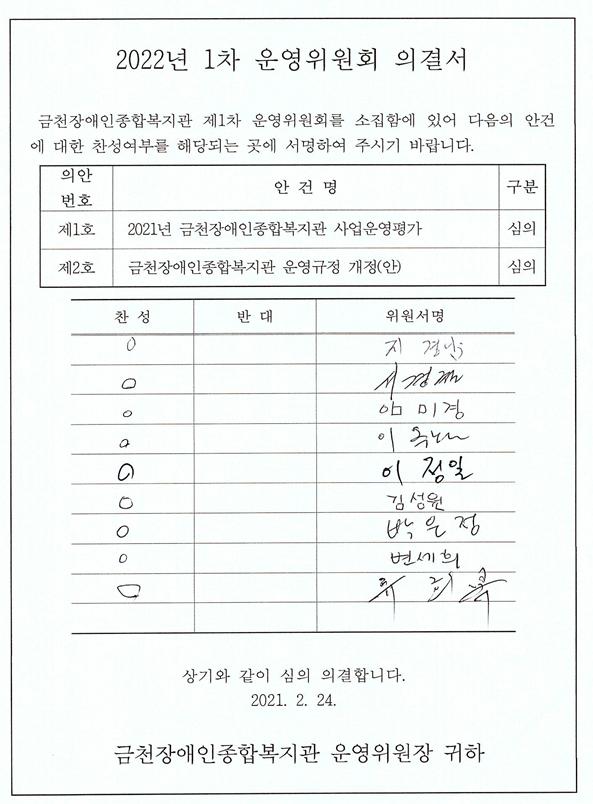 2022년 1차 운영위원회 의결서
금천장애인종합복지관 제1차 운영위원회를 소집함에 있어 다음의 안건
에 대한 찬성여부를 해당되는 곳에 서명하여 주시기 바랍니다.
의안
번호 안 건 명 구분
제1호 2021년 금천장애인종합복지관 사업운영평가 심의
제2호 금천장애인종합복지관 운영규정 개정(안) 심의
찬 성 반 대 위원서명
0 지
0 서경
0 미경
0 이
0 이 정일
0 김성원
0 박은정
0 변세희
0
상기와 같이 심의 의결합니다.
2021. 2. 24.
금천장애인종합복지관 운영위원장 귀하